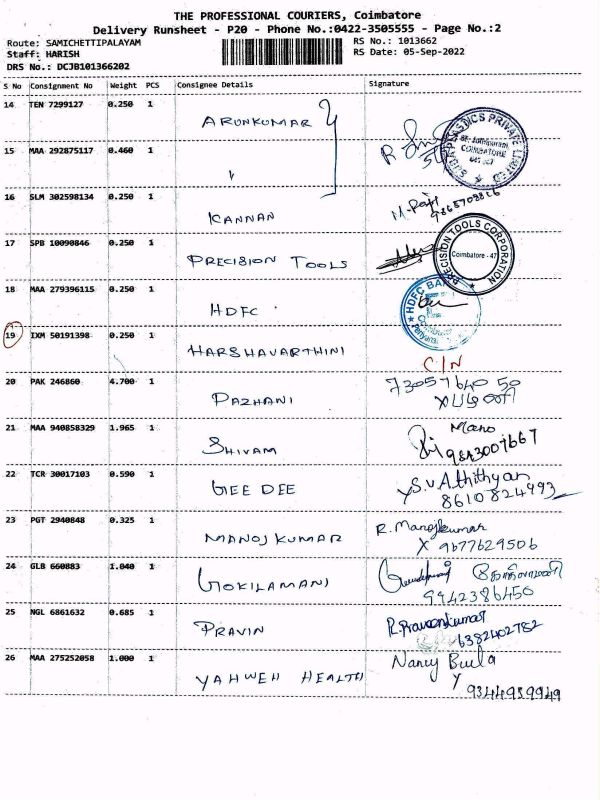 THE PROFESSIONAL COURIERS, Coimbatore
Delivery Runsheet - P20 - Phone No.:0422-3505555 - Page No.:2
Route: SAMICHETTIPALAYAM RS No.: 1013662
Staff: HARISH RS Date: 05-Sep-2022
DRS No.: DCJB101366202
S No Consignment No Weight PCS Consignee Details Signature
14 TEN 7299127 0.250 1
ARUNKUMAR
15 MAA 292875117 0.460 1
COIMBATORE
16 SLM 302598134 0.250 1
KANNAN M. Raji
17 SPB 10090846 0.250 1
PRECISION TOOLS PRECISION TOOLS CORPORATION
Coimbatore - 47
18 MAA 279396115 0.250 1
HDFC HDFC BANK
19 IXM 50191398 0.250 1
HARSHAVARTHINI C/N
20 PAK 246860 4.700 1 73057640 50
PAZHANI பழனி
21 MAA 940858329 1.965 1 Mano
SHIVAM 9843007667
22 TCR 30017103 0.590 1 S.V Athithyan
GEE DEE 8610824993
23 PGT 2940848 0.325 1 R. Manojkumar
MANOJ KUMAR X 9677629506
24 GLB 660883 1.040 1 கோகிலாமணி
GOKILAMANI 9942386450
25 NGL 6861632 0.685 1 R. Praveenkumar
PRAVIN 6382402782
26 MAA 275252058 1.000 1 Nancy Beula
YAHWEH HEALTH 9344939949